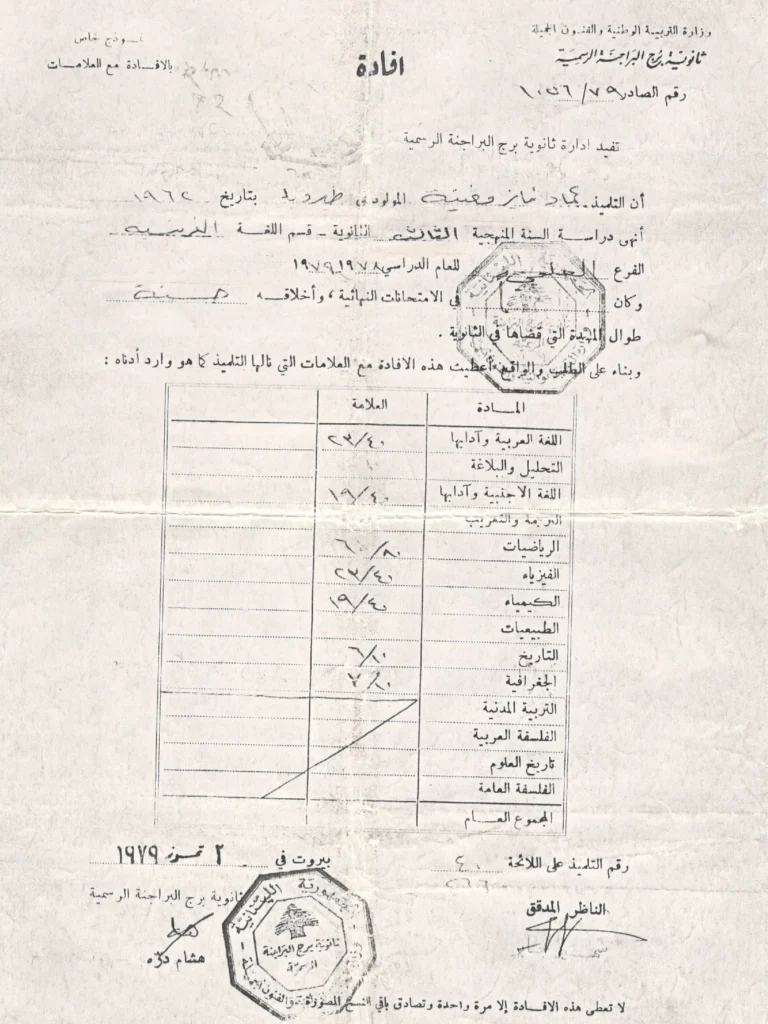 وزارة التربية الوطنية والفنون الجميلة
ثانوية برج البراجنة الرسمية
رقم الصادر ١٠٥٦/٧٩
نموذج خاص
بالافادة مع العلامات
افادة
تفيد ادارة ثانوية برج البراجنة الرسمية
أن التلميذ عماد فايز مغنية المولود في طيردبا بتاريخ ١٩٦٢
أنهى دراسة السنة المنهجية الثالثة الثانوية - قسم اللغة الفرنسية
الفرع العلمي للعام الدراسي ١٩٧٨ ١٩٧٩
وكان في الامتحانات النهائية ، وأخلاقه حسنة
طوال المدة التي قضاها في الثانوية .
وبناء على الطلب والواقع أعطيت هذه الافادة مع العلامات التي نالها التلميذ كما هو وارد أدناه :
المادة العلامة
اللغة العربية وآدابها ٢٣/٤٠
التحليل والبلاغة
اللغة الاجنبية وآدابها ١٩/٤٠
الترجمة والتعريب
الرياضيات ٦٠/٨٠
الفيزياء ٢٣/٤٠
الكيمياء ١٩/٤٠
الطبيعيات
التاريخ ٦/٢٠
الجغرافية ٧/٢٠
التربية المدنية
الفلسفة العربية
تاريخ العلوم
الفلسفة العامة
المجموع العام
رقم التلميذ على اللائحة ٤٠
بيروت في ٢ تموز ١٩٧٩
الناظر المدقق
ثانوية برج البراجنة الرسمية
هشام درّه
الجمهورية اللبنانية
ثانوية برج البراجنة
الرسمية
لا تعطى هذه الافادة إلا مرة واحدة وتصادق باقي النسخ المصورة